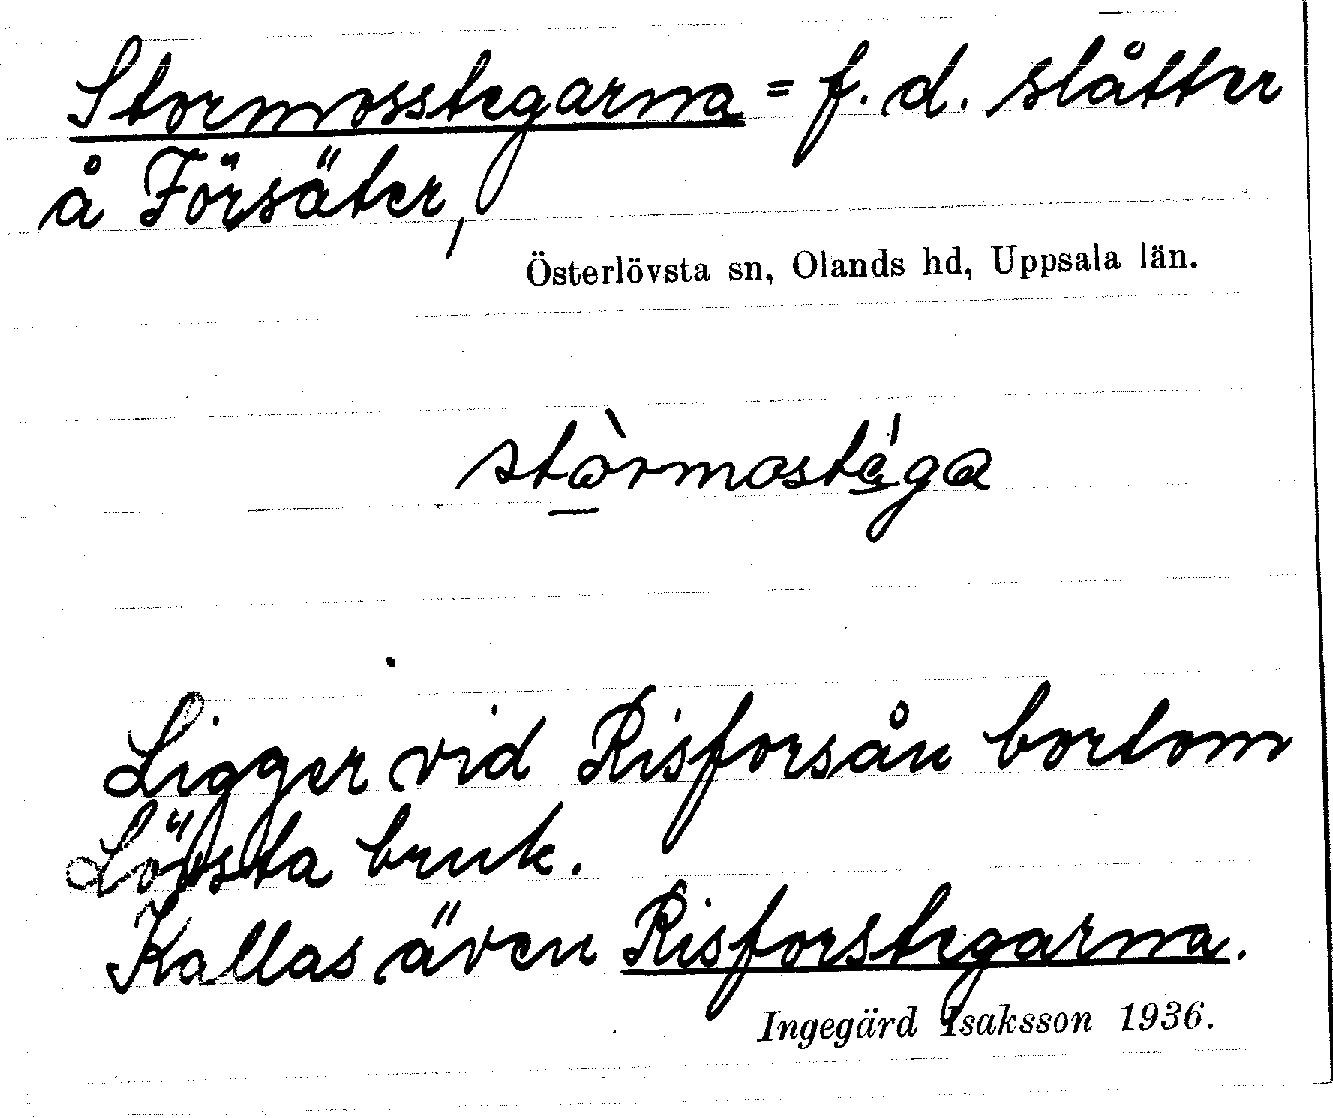 Stormosstegarna = f. d. slåtter
å Försäter,
Österlövsta sn, Olands hd, Uppsala län.
stòrmostéga
Ligger vid Risforsån bortom
Lövsta bruk.
Kallas även Risforstegarna.
Ingegärd Isaksson 1936.